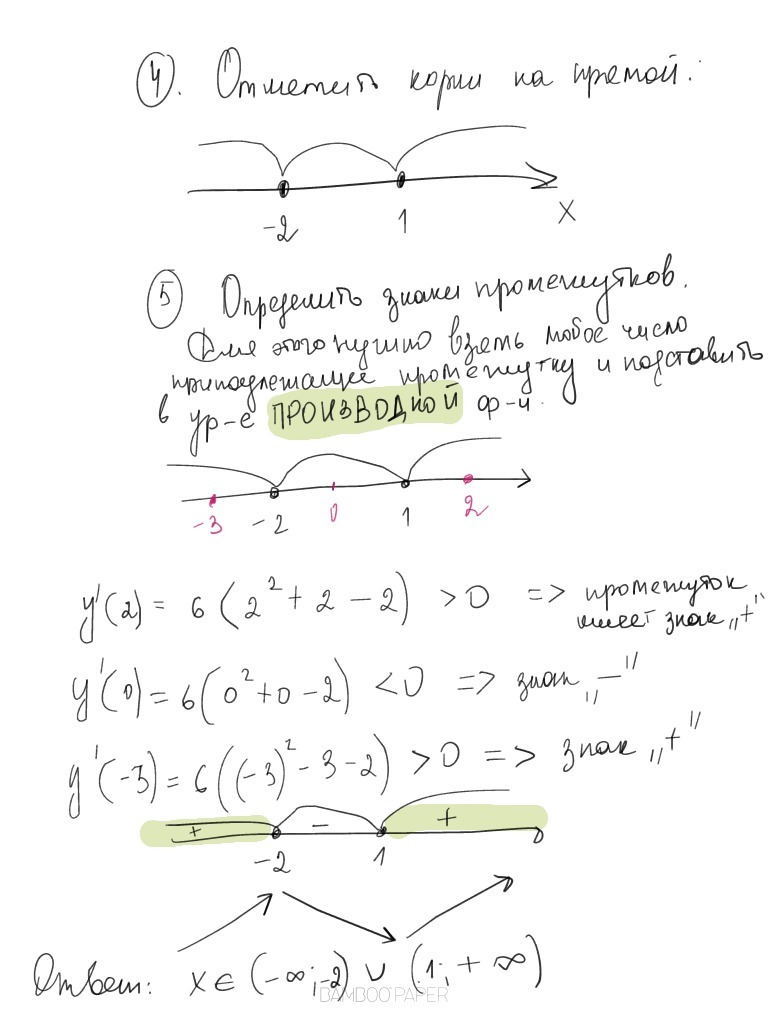 4. Отметить корни на прямой:
-2 1 x
5 Определить знаки промежутков.
Для этого нужно взять любое число
принадлежащее промежутку и подставить
в ур-е ПРОИЗВОДНОЙ ф-и.
-3 -2 0 1 2
y'(2) = 6(2² + 2 - 2) > 0 => промежуток
имеет знак „+"
y'(0) = 6(0² + 0 - 2) < 0 => знак „—"
y'(-3) = 6((-3)² - 3 - 2) > 0 => знак „+"
+ − +
-2 1
Ответ: x ∈ (-∞; -2) ∪ (1; + ∞)
BAMBOO PAPER